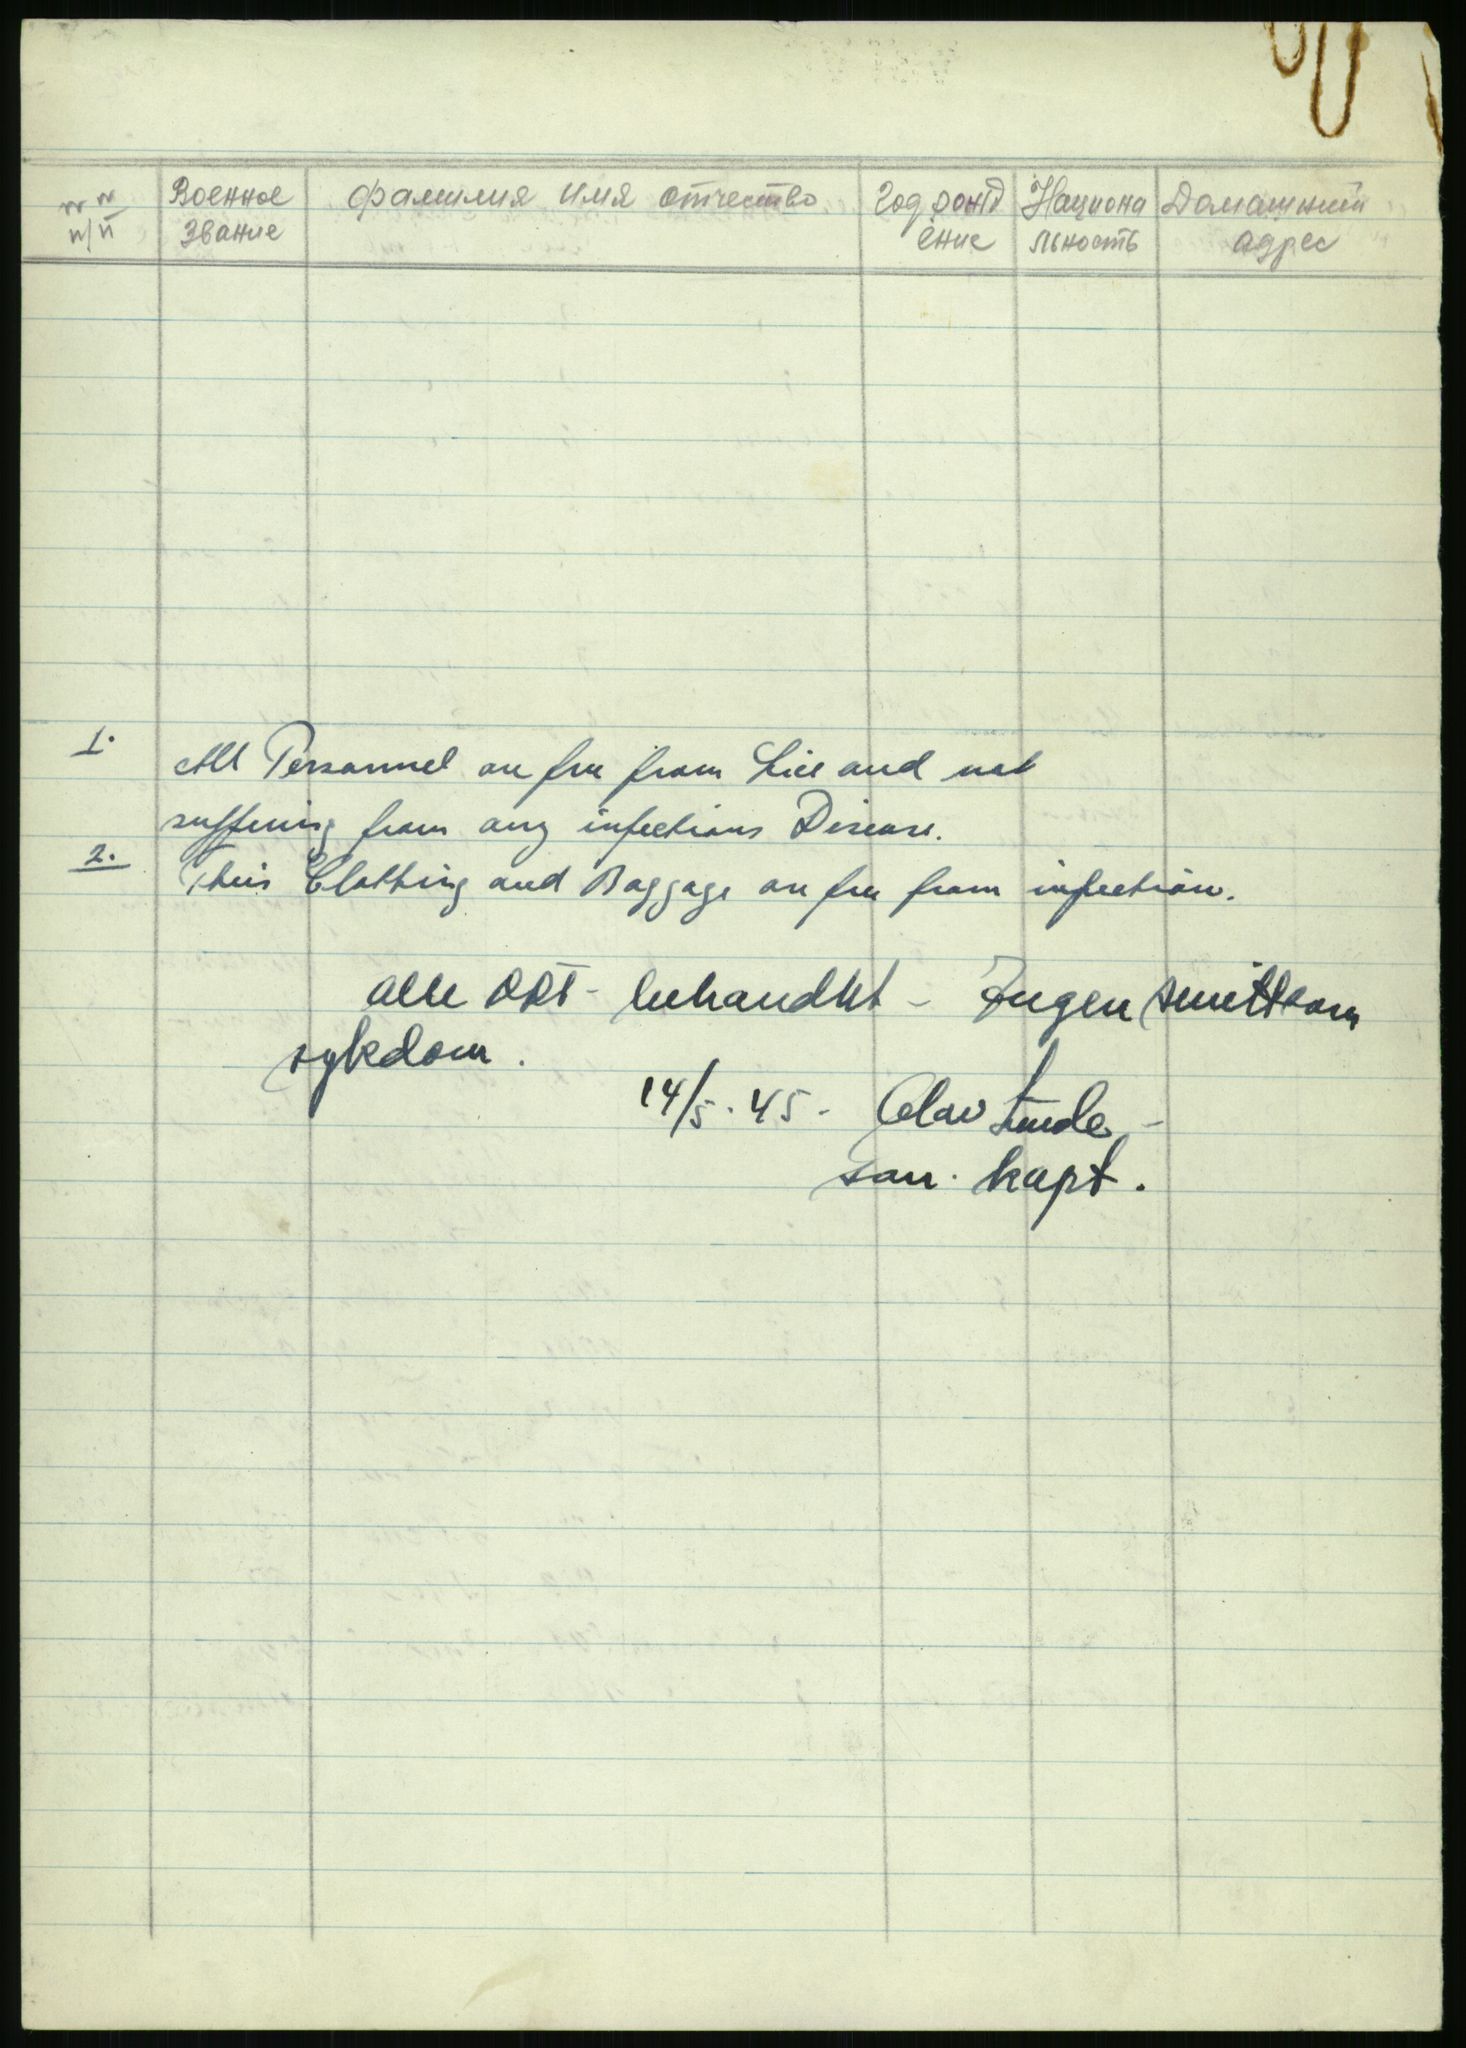 № № Военное Фамилия имя отчество Год рожд Национа Домашний
п/п Звание ение льность адрес
1. All Personnel are free from Lice and not
suffering from any infectious Disease.
2. Their Clothing and Baggage are free from infection.
alle DDT- behandlet - Ingen smittsom
sykdom.
14/5.45- Olav Lunde -
san. kapt.